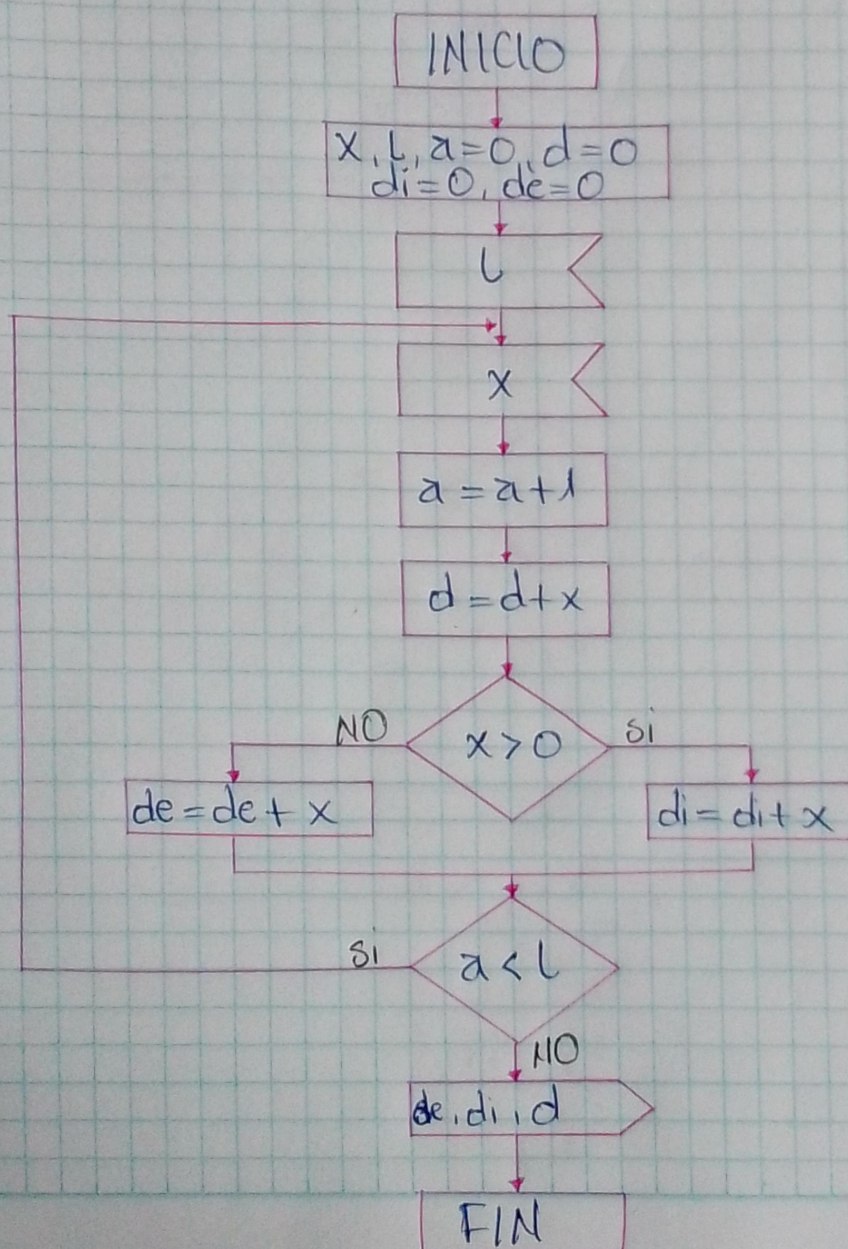 INICIO
x, l, a=0, d=0
di=0, de=0
l
x
a = a+1
d = d+x
x>0
NO
Si
de = de + x
di = di + x
a < l
Si
NO
de, di, d
FIN